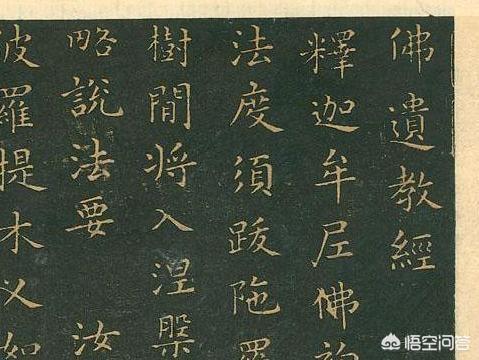 佛遺教經
釋迦牟尼佛初
法度須跋陀羅
樹間将入涅槃
略說法要 汝
波羅提木叉如
悟空问答